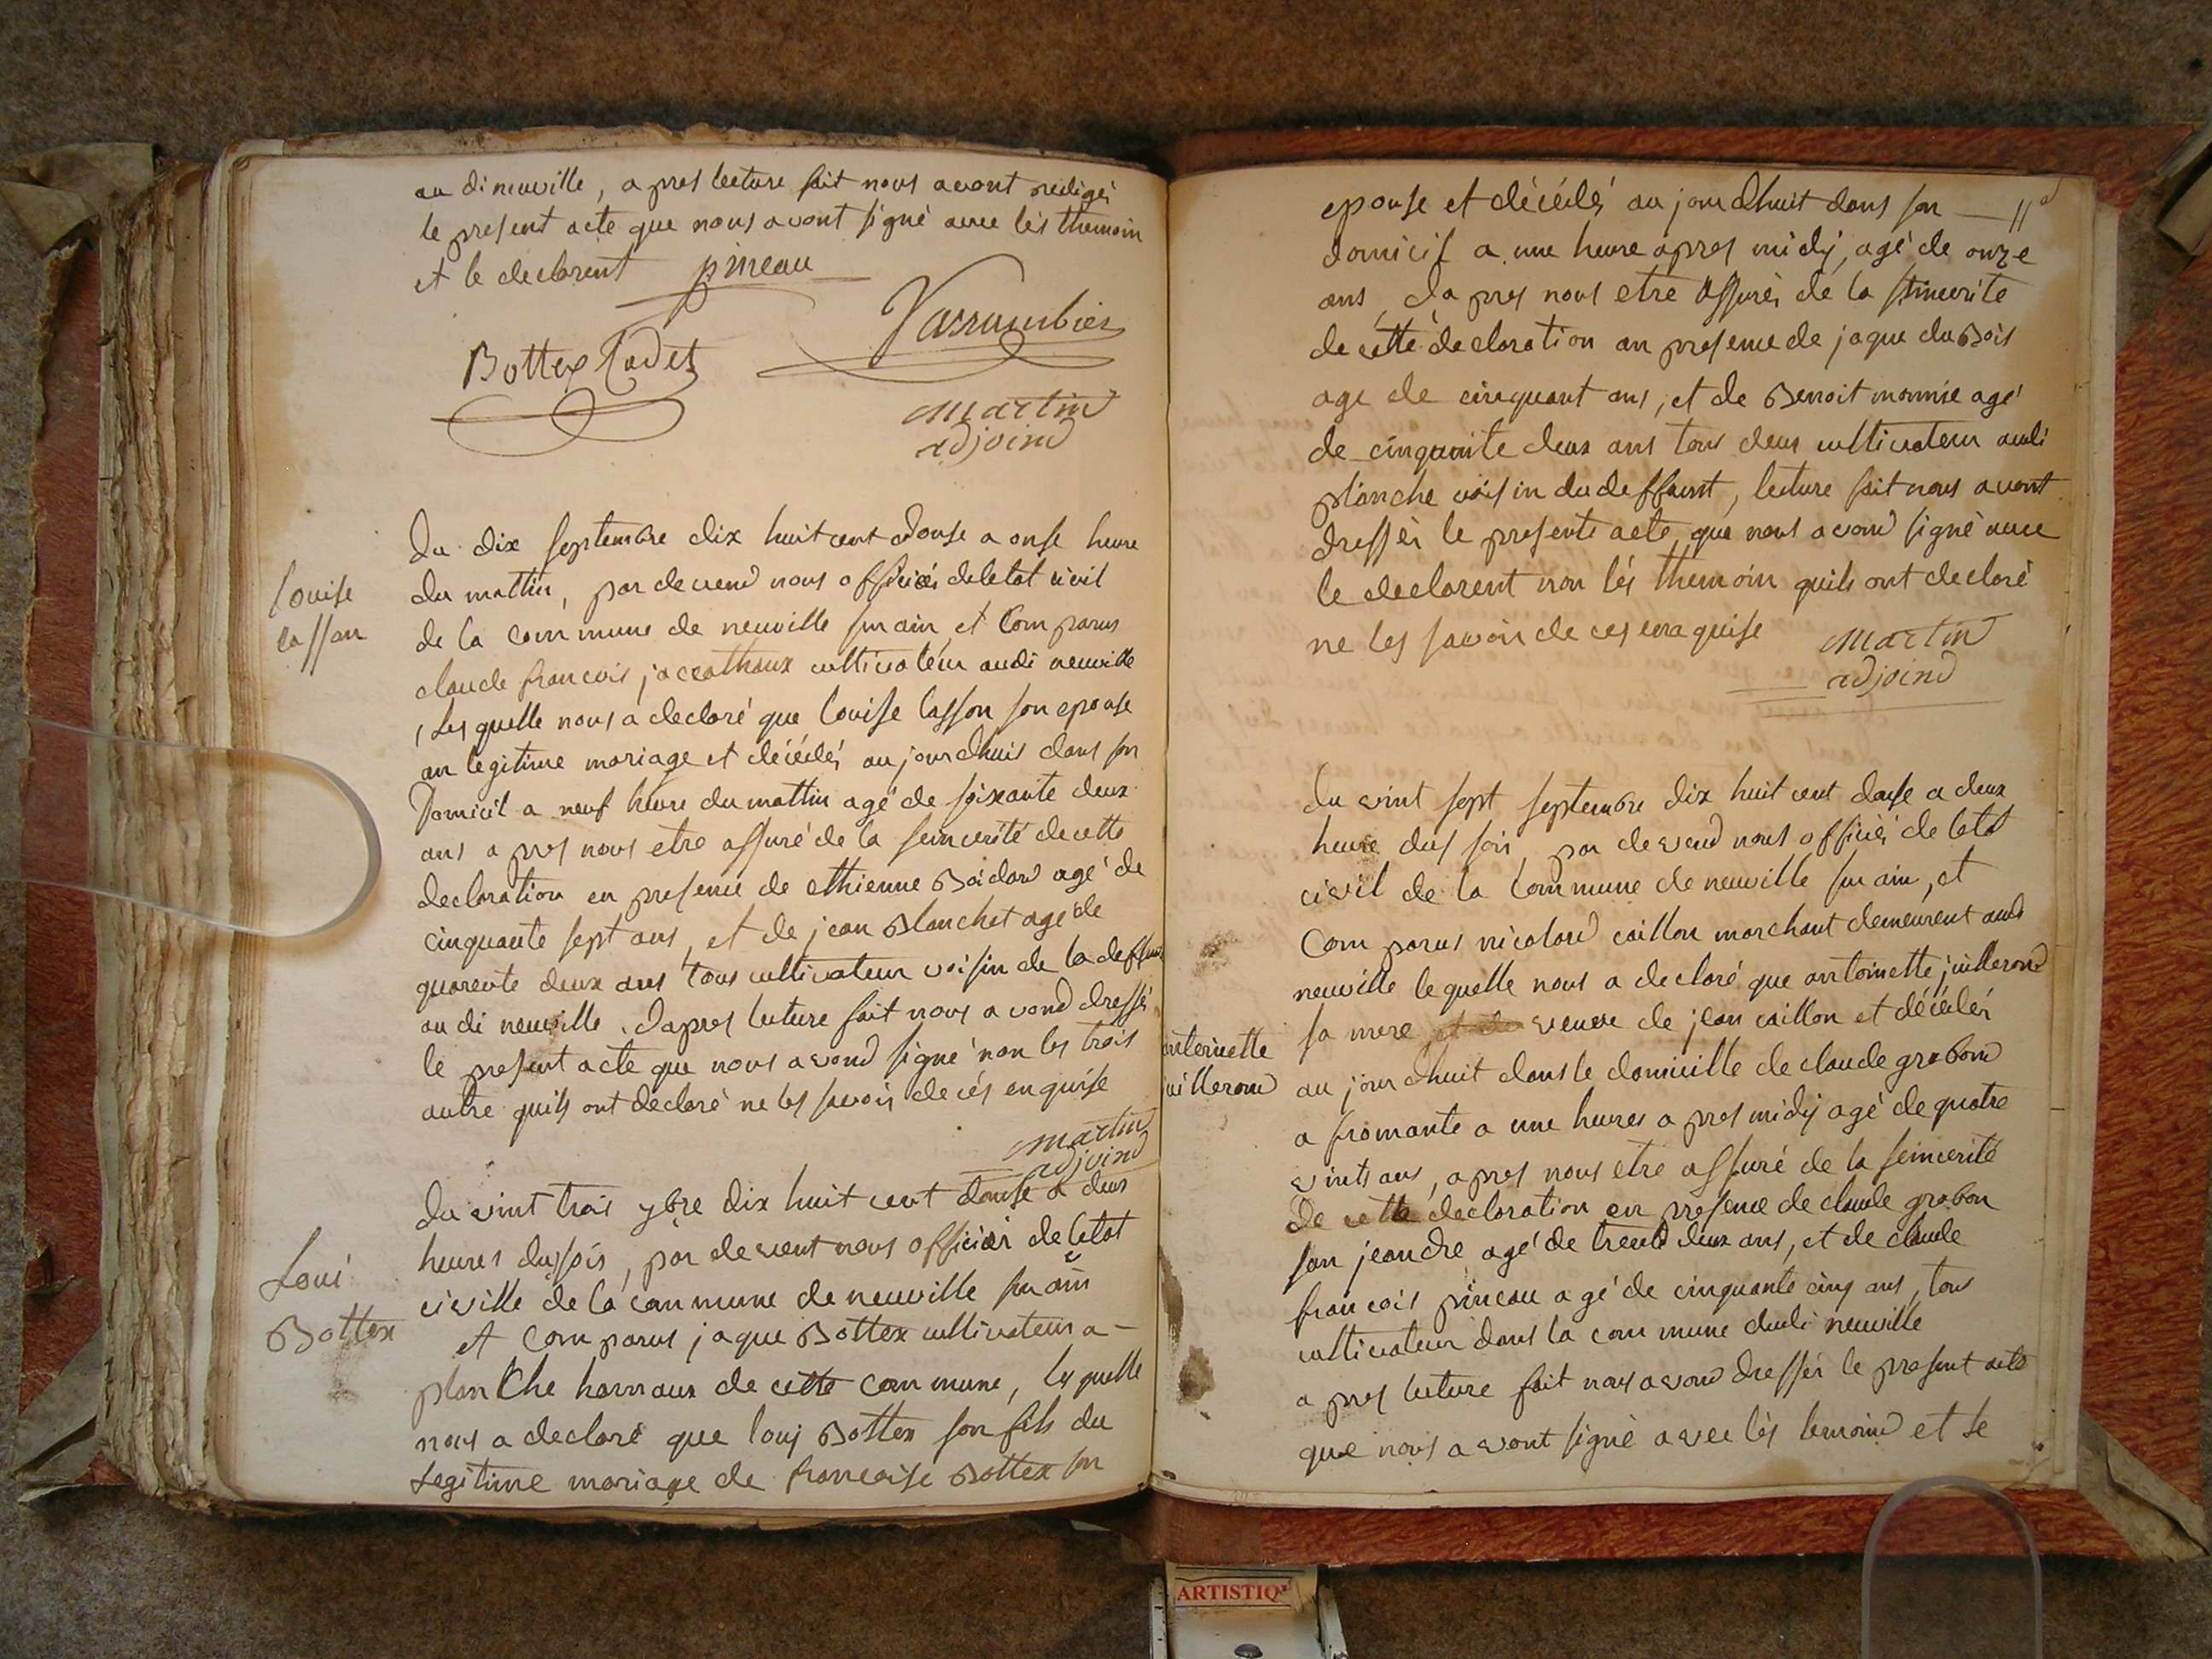 au di neuville, a pres lecture fait nous avont redigés
le present acte que nous avont signé avec lés themoin
et le declarent pineau
Vassumbier
Bottex Cadet
martin
adjoind
Louise
lasson
Du dix septembre dix huit cent douse a onse heure
du mattin, par devend nous officiér de letat civil
de la commune de neuville sur ain, et Comparus
claude francois jaccathaux cultivateur audi neuville
, lesquelle nous a declaré que louise lasson son epouse
an legitime mariage et décédés aujourdhuis dans son
Domicil a neuf heure du mattin agé de soixante deux
ans a pres nous etre assuré de la seincerité de cette
declaration en presence de ethienne Boidard agé de
cinquante sept ans, et de jean Blanchet agé de
quarente deux ans tous cultivateur voisin de la deffunt
au di neuville. dapres lecture fait nous avond dressés
le present acte que nous avond signé non les trois
autre quils ont declaré ne les savoir de cés enquise
martin
adjoind
Loui
Bottex
Du vint trois ybre dix huit cent douse a deux
heures du soir, par devent nous officiér de letat
civille de la commune de neuville sur ain
et Comparus jaque Bottex cultivateur a -
planche hamaux de cette commune, lesquelle
nous a declaré que louj Bottex son fils du
Legitime mariage de francoise Bottex son
epouse et décédés au jourdhuit dans son — 11
domicil a une heure apres midy, agé de onze
ans, dapres nous etre assurés de la sincerite
de cette declaration an presence de jaque duBois
age de cinquant ans, et de Benoit monnie agé
de cinquante deux ans tous deux cultivateur audi
planche voisin du deffaunt, lecture fait nous avont
dressér le presente acte, que nous avond signé avec
le declarent non lés themoin quils ont declaré
ne les savoir de ces enraquise
martin
adjoind
antoinette
juillerond
Du vint sept septembre dix huit cent douse a deux
heure dus soir, par devend nous officiér de letat
civil de la Commune de neuville sur ain, et
Comparus nicolard caillon marchant demeurent audi
neuville lequelle nous a declaré que antoinette juillerond
sa mere veuve de jean caillon et décédés
au jour dhuit dans le domicille de claude grabond
a fromante a une heures a pres midy agé de quatre
vints ans, apres nous etre assuré de la seincerité
De cette declaration en présence de claude grabon
son jeandre agé de trente deux ans, et de claude
francois pineau agé de cinquante cinq ans, tous
cultivateur dans la commune dudi neuville
a pres lecture fait nous avond dressér le present acte
que nous avont signé avec lés temoind et le
ARTISTIQ